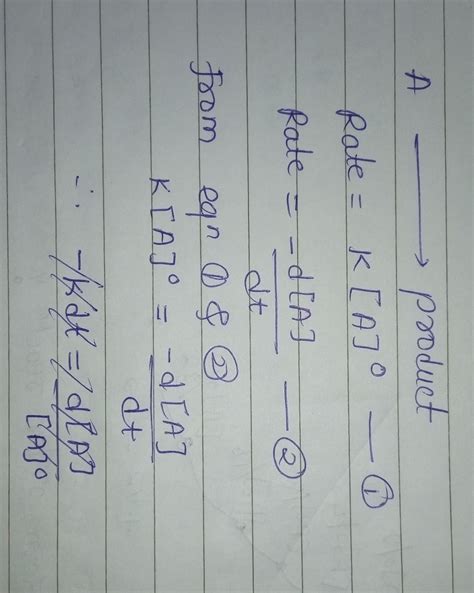 A ⟶ product
Rate = K [A]⁰ — ①
Rate = -d[A]/dt — ②
from eqn ① & ②
K[A]⁰ = -d[A]/dt
∴ -Kdt = d[A]/[A]⁰